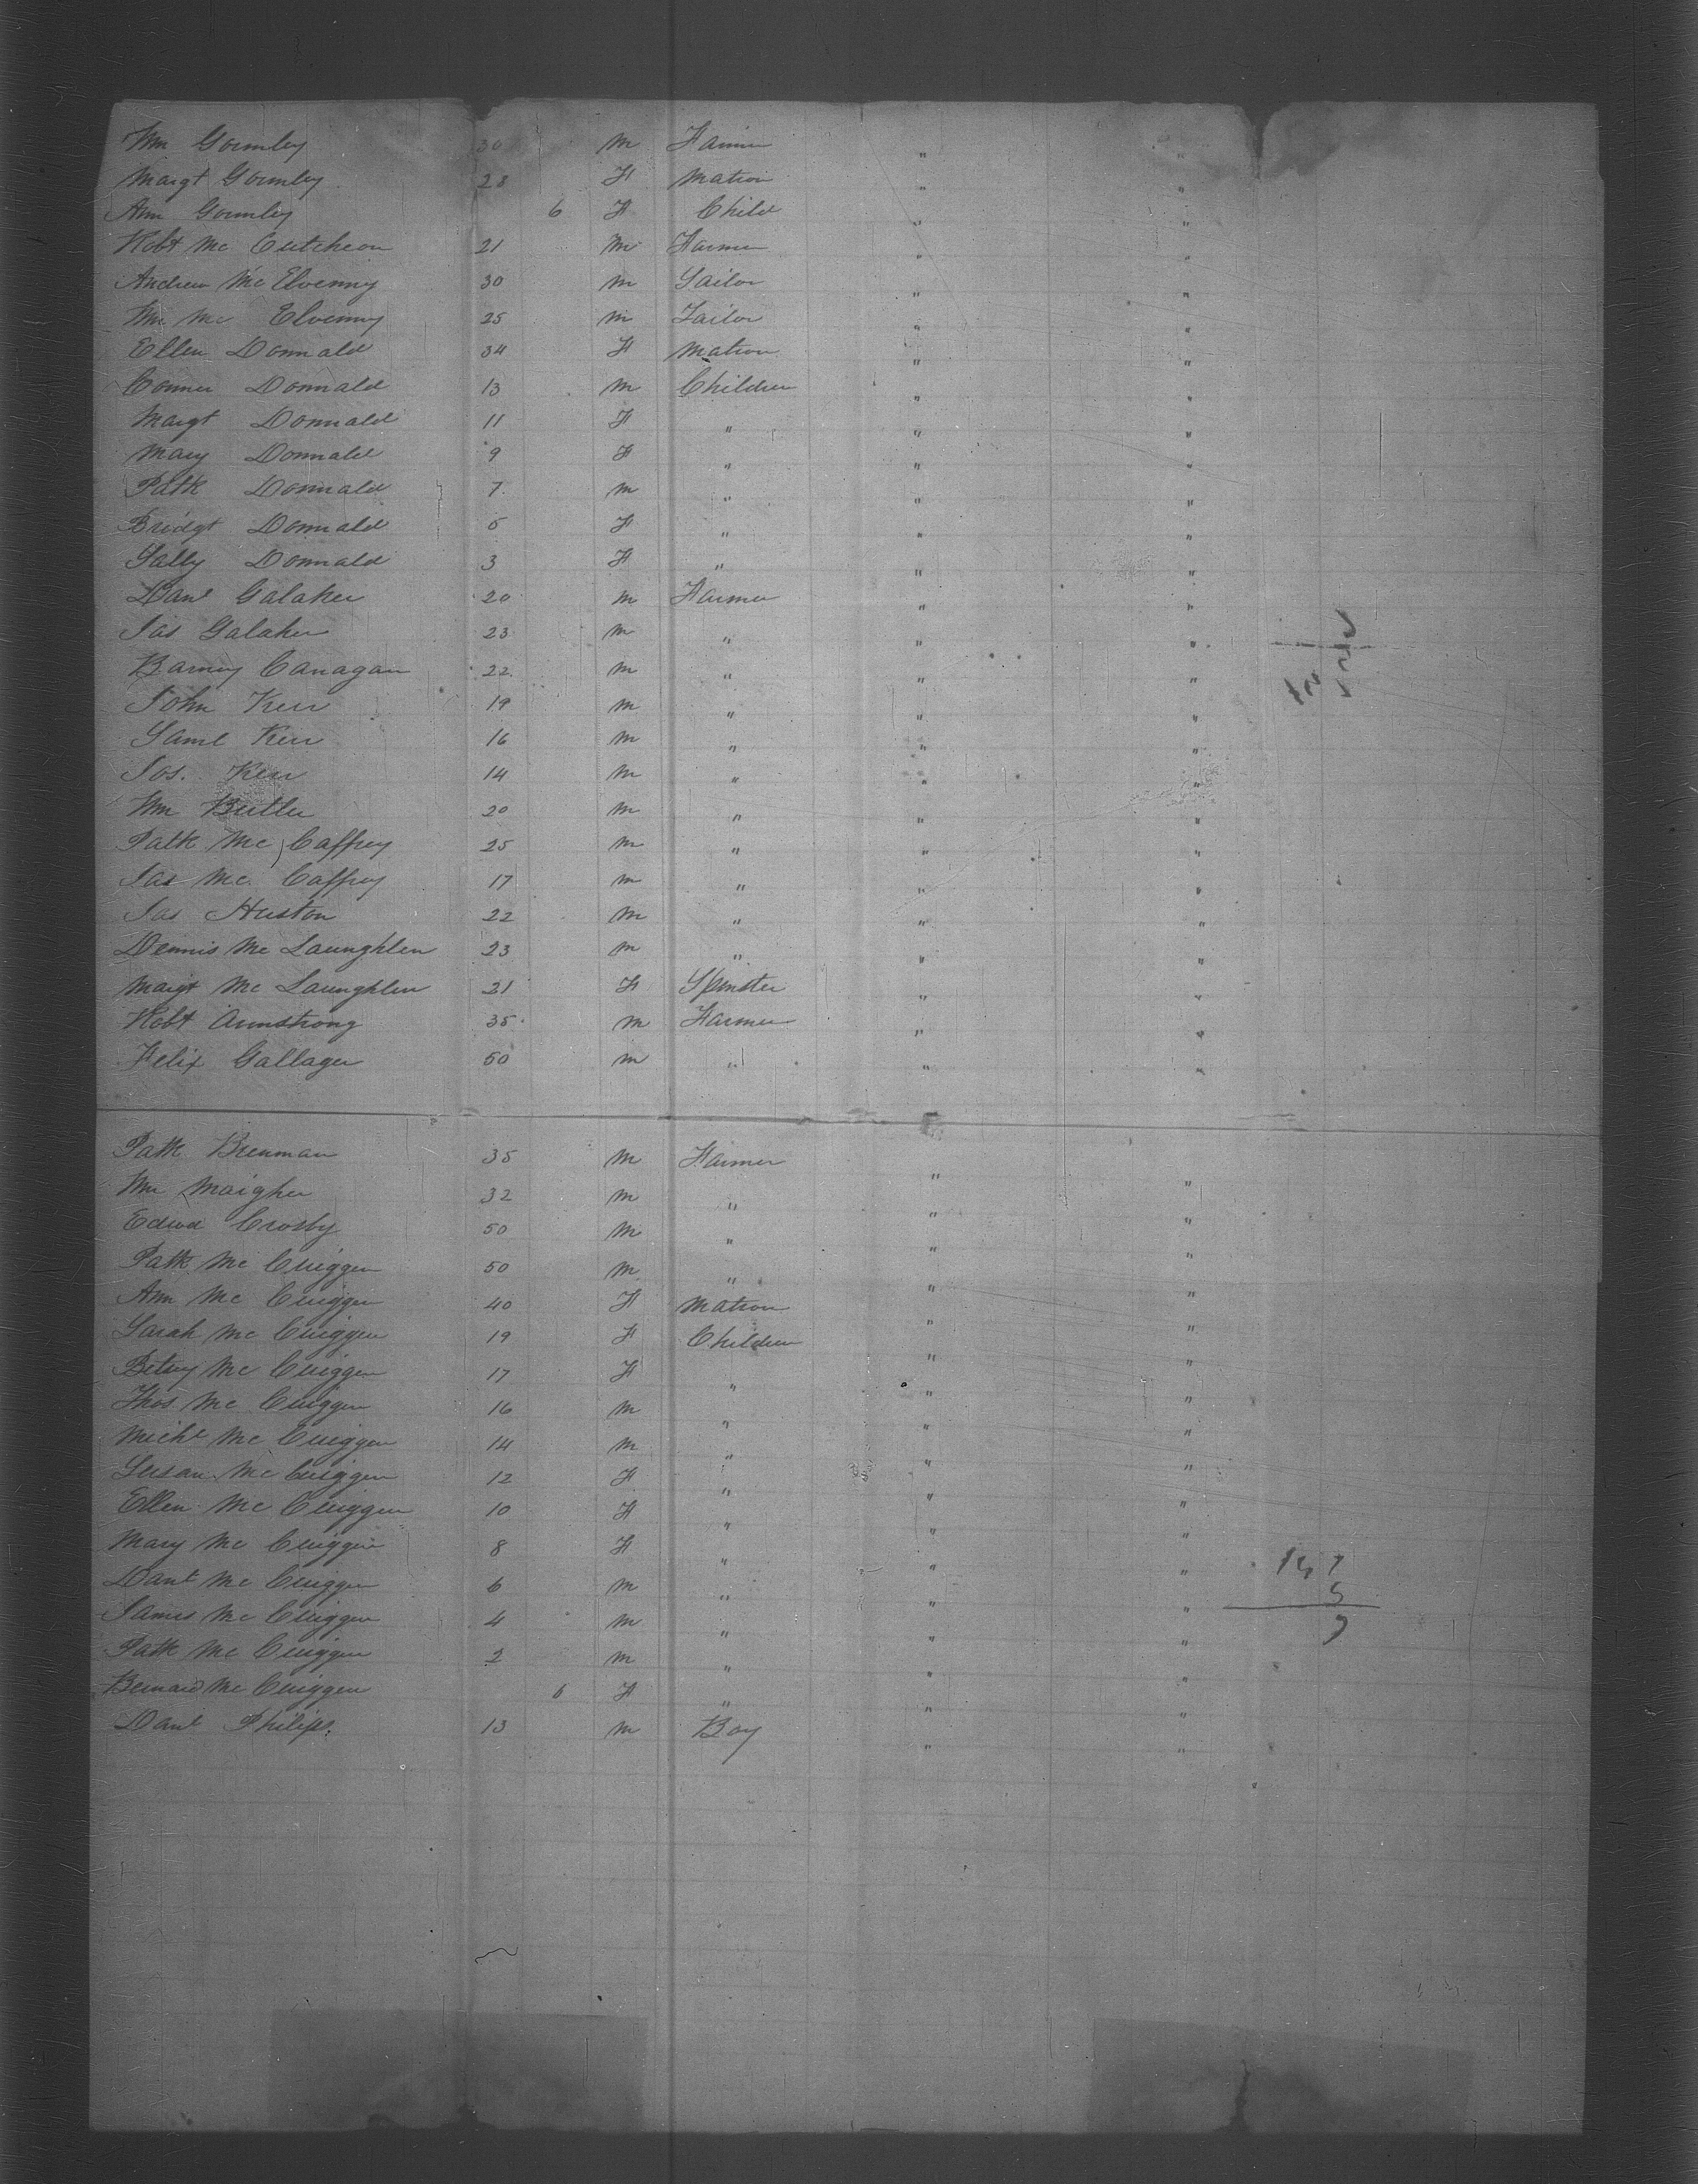 Wm Gormley 30 M Farmer " "
Margt Gormley 28 F Matron " "
Ann Gormley 6 F Child " "
Robt Mc Cutcheon 21 M Farmer " "
Andrew Mc Elvenny 30 M Sailor " "
Wm Mc Elvenny 25 M Tailor " "
Ellen Donnald 34 F Matron " "
Conner Donnald 13 M Children " "
Margt Donnald 11 F " " "
Mary Donnald 9 F " " "
Patk Donnald 7 M " " "
Bridgt Donnald 5 F " " "
Sally Donnald 3 F " " "
Danl Galaher 20 M Farmer " "
Jas Galaher 23 M " " "
Barney Canagan 22 M " " "
John Kerr 19 M " " "
Saml Kerr 16 M " " "
Jos. Kerr 14 M " " "
Wm Butler 20 M " " "
Patk Mc Caffrey 25 M " " "
Jas Mc Caffrey 17 M " " "
Jas Huston 22 M " " "
Dennis Mc Laughlen 23 M " " "
Margt Mc Laughlen 21 F Spinster " "
Robt Armstrong 35 M Farmer " "
Felix Gallager 50 M " " "
Patk Brennan 35 M Farmer " "
Wm Maigher 32 M " " "
Edwd Crosby 50 M " " "
Patk Mc Cuiggen 50 M " " "
Ann Mc Cuiggen 40 F Matron " "
Sarah Mc Cuiggen 19 F Children " "
Betsy Mc Cuiggen 17 F " " "
Thos Mc Cuiggen 16 M " " "
Michl Mc Cuiggen 14 M " " "
Susan Mc Cuiggen 12 F " " "
Ellen Mc Cuiggen 10 F " " "
Mary Mc Cuiggen 8 F " " "
Danl Mc Cuiggen 6 M " " "
James Mc Cuiggen 4 M " " "
Patk Mc Cuiggen 2 M " " "
Bernard Mc Cuiggen 6 F " " "
Danl Philips 13 M Boy " "